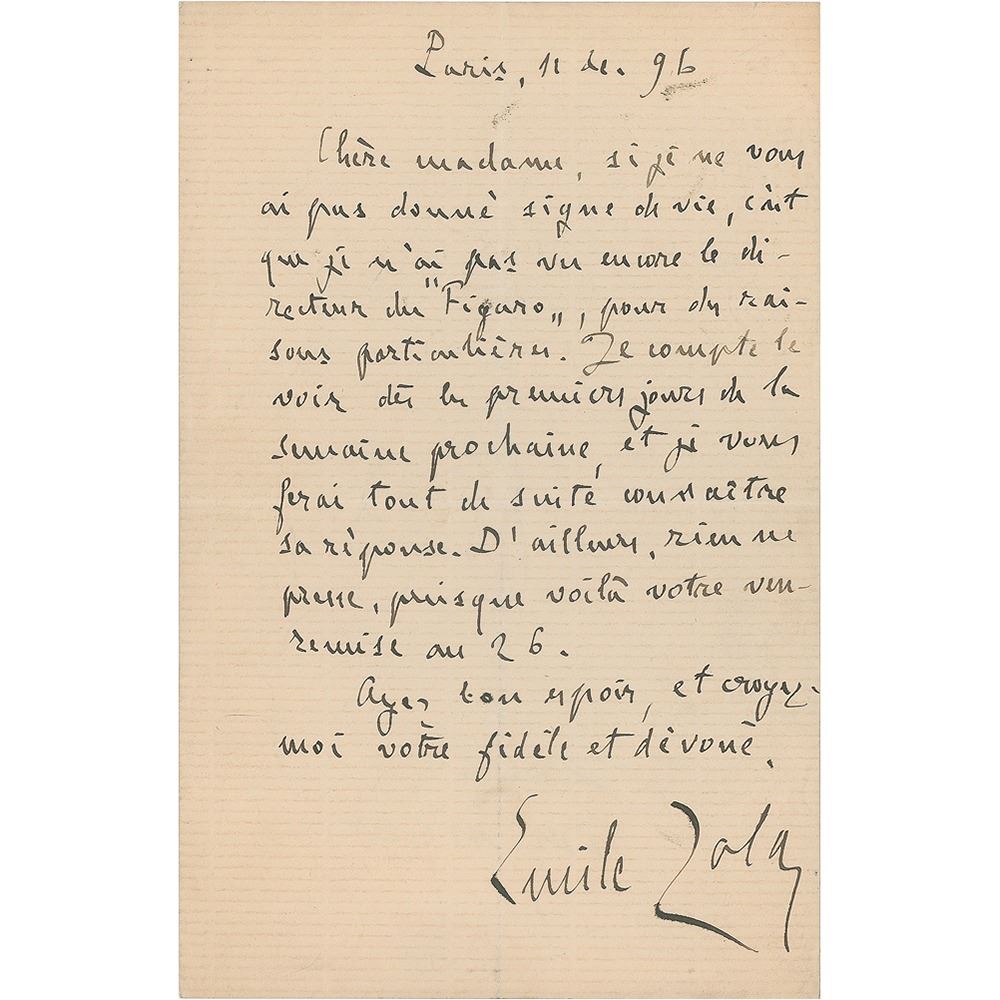 Paris, 11 de. 96
Chère madame, si je ne vous
ai pas donné signe de vie, c'est
que je n'ai pas vu encore le di-
recteur du "Figaro", pour des rai-
sons particulières. Je compte le
voir dès les premiers jours de la
semaine prochaine, et je vous
ferai tout de suite connaître
sa réponse. D'ailleurs, rien ne
presse, puisque voilà votre ven-
remise au 26.
Ayez bon espoir, et croyez-
moi votre fidèle et dévoué.
Emile Zola